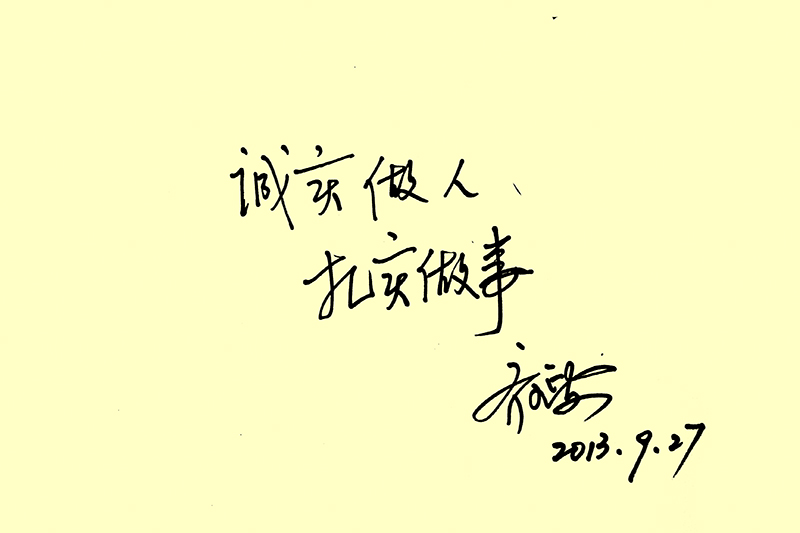 诚实做人、
扎实做事
2013.9.27